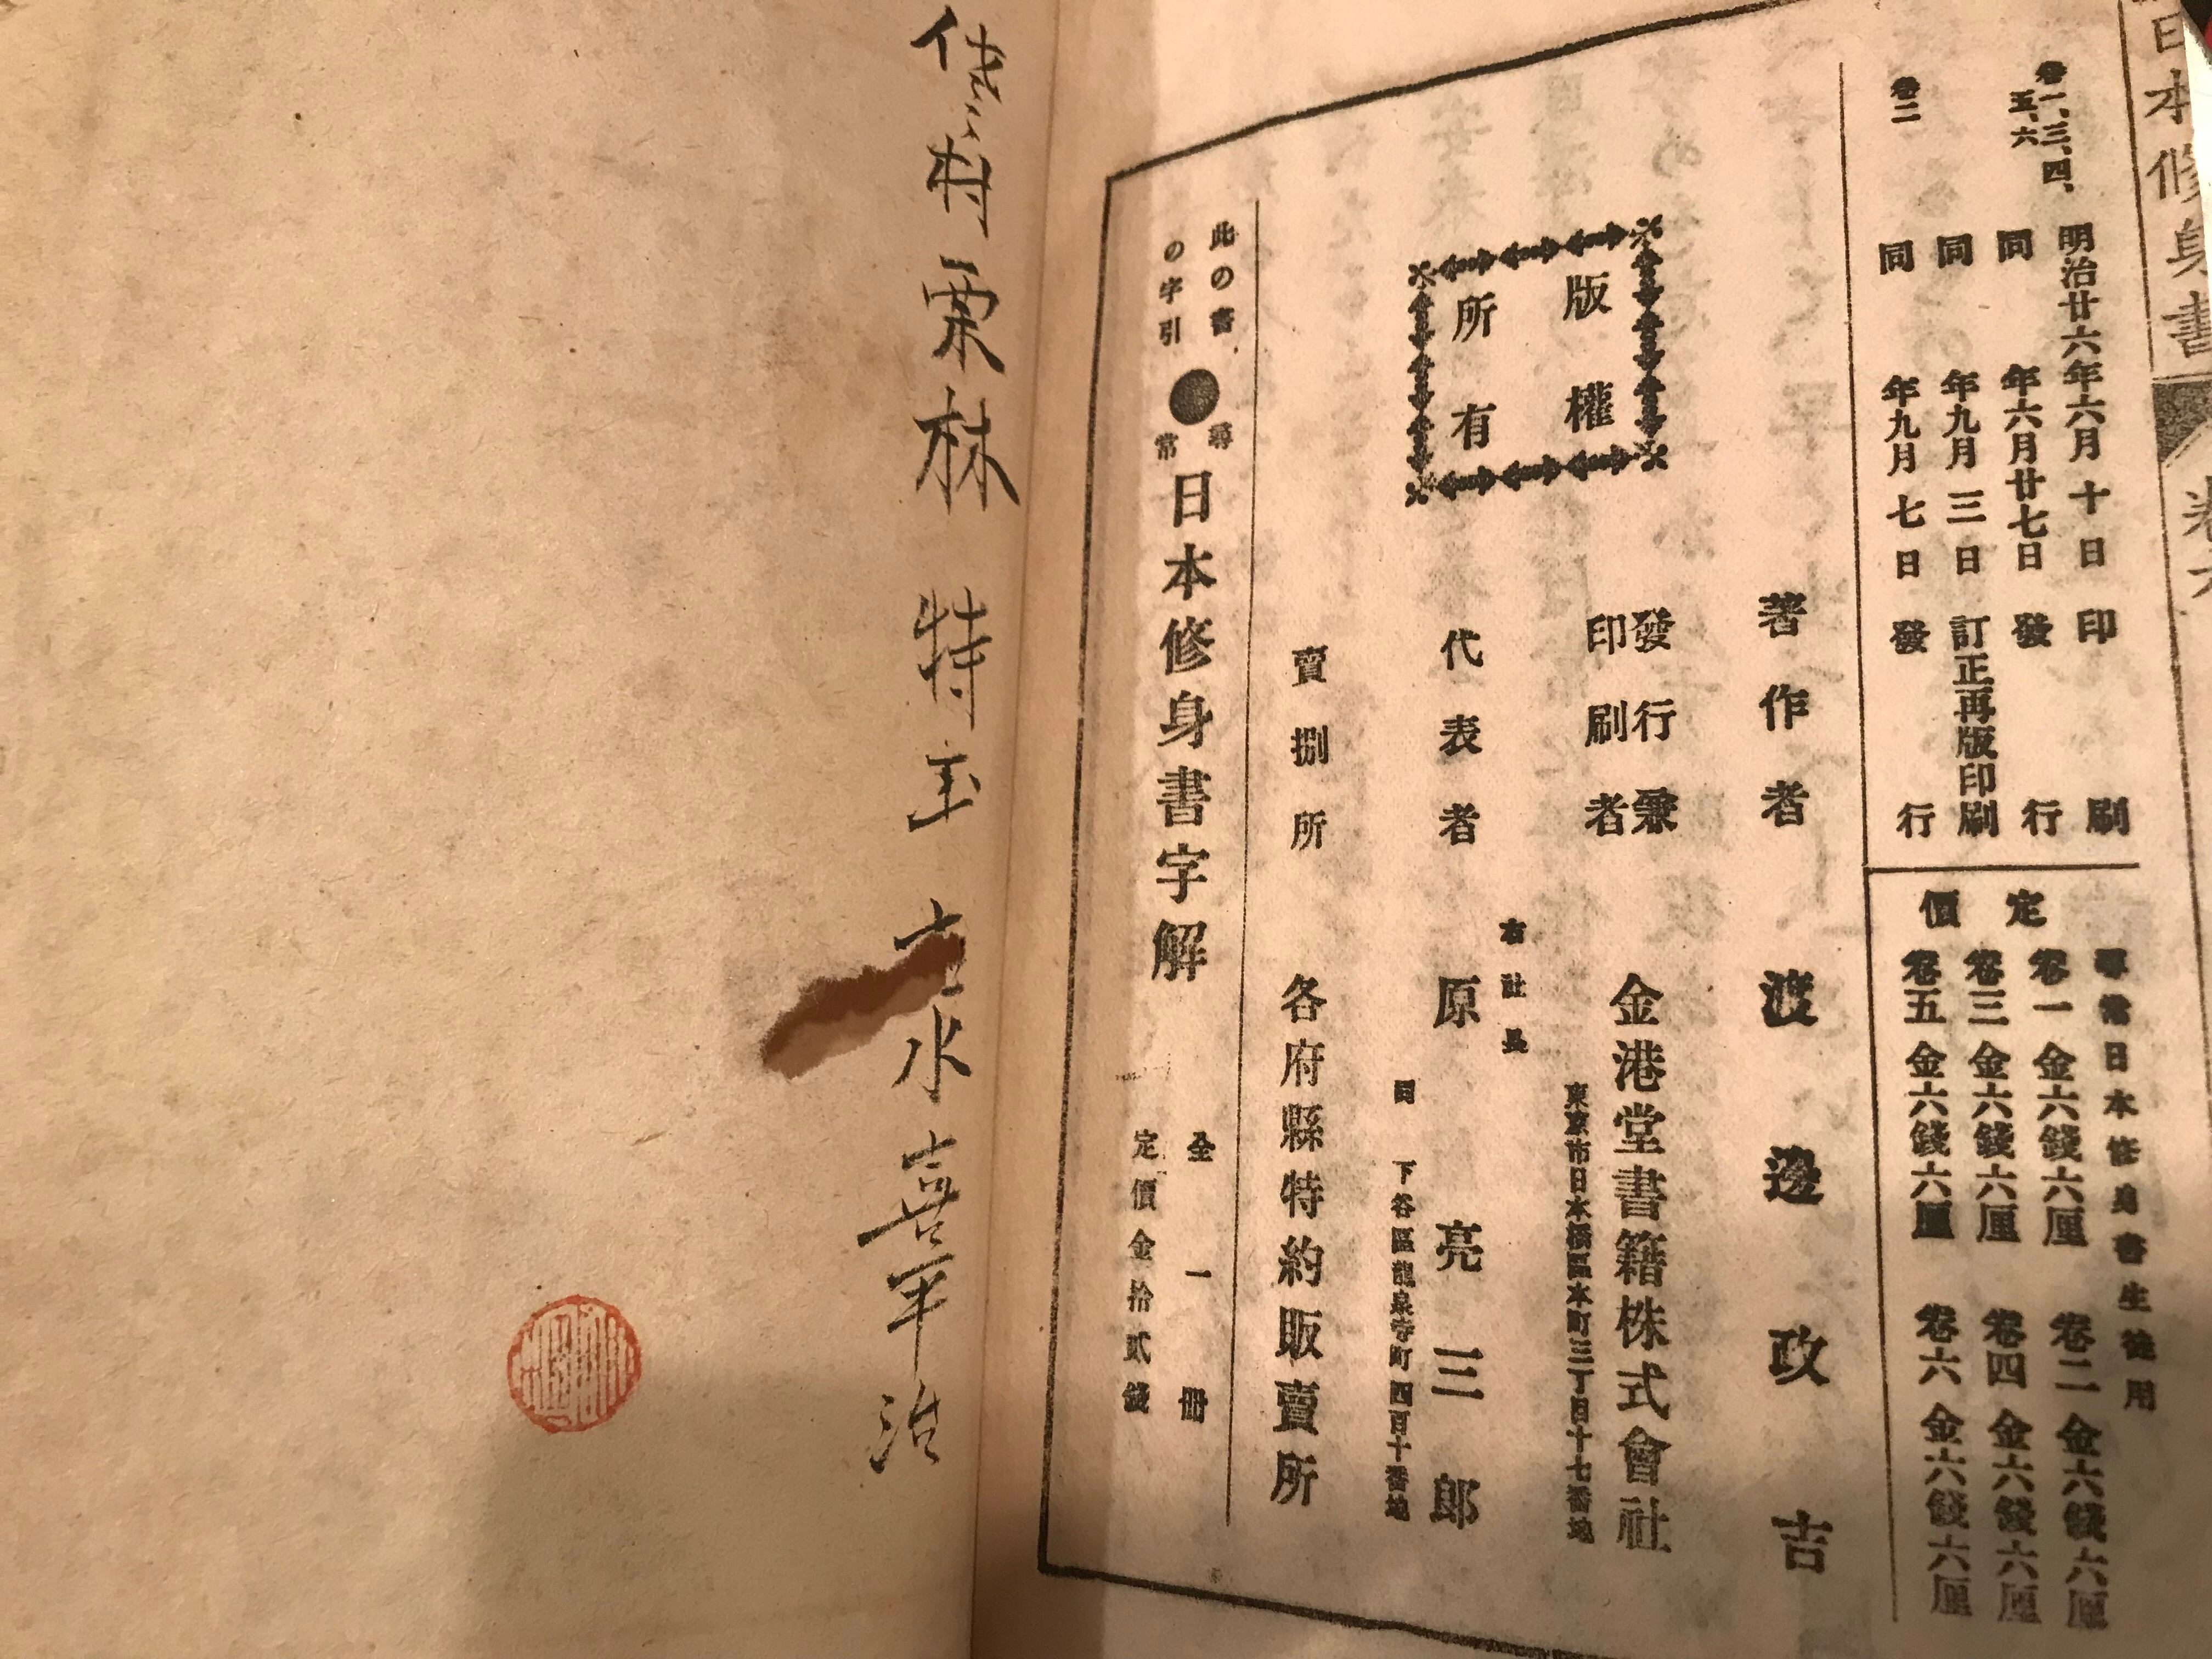 日本修身書
卷一、三、四、
五、六
明治廿六年六月十日印刷
同年六月廿七日發行
卷二
同年九月三日訂正再版印刷
同年九月七日發行
尋常日本修身書生徒用
定價
卷一金六錢六厘 卷二金六錢六厘
卷三金六錢六厘 卷四金六錢六厘
卷五金六錢六厘 卷六金六錢六厘
版權
所有
著作者 渡邊政吉
發行兼
印刷者 金港堂書籍株式會社
東京市日本橋區本町三丁目十七番地
右社長
代表者 原亮三郎
同 下谷區龍泉寺町四百十番地
賣捌所 各府縣特約販賣所
此の書
の字引
●
尋常
日本修身書字解
全一冊
定價金拾貳錢
村栗林 特 水喜平治